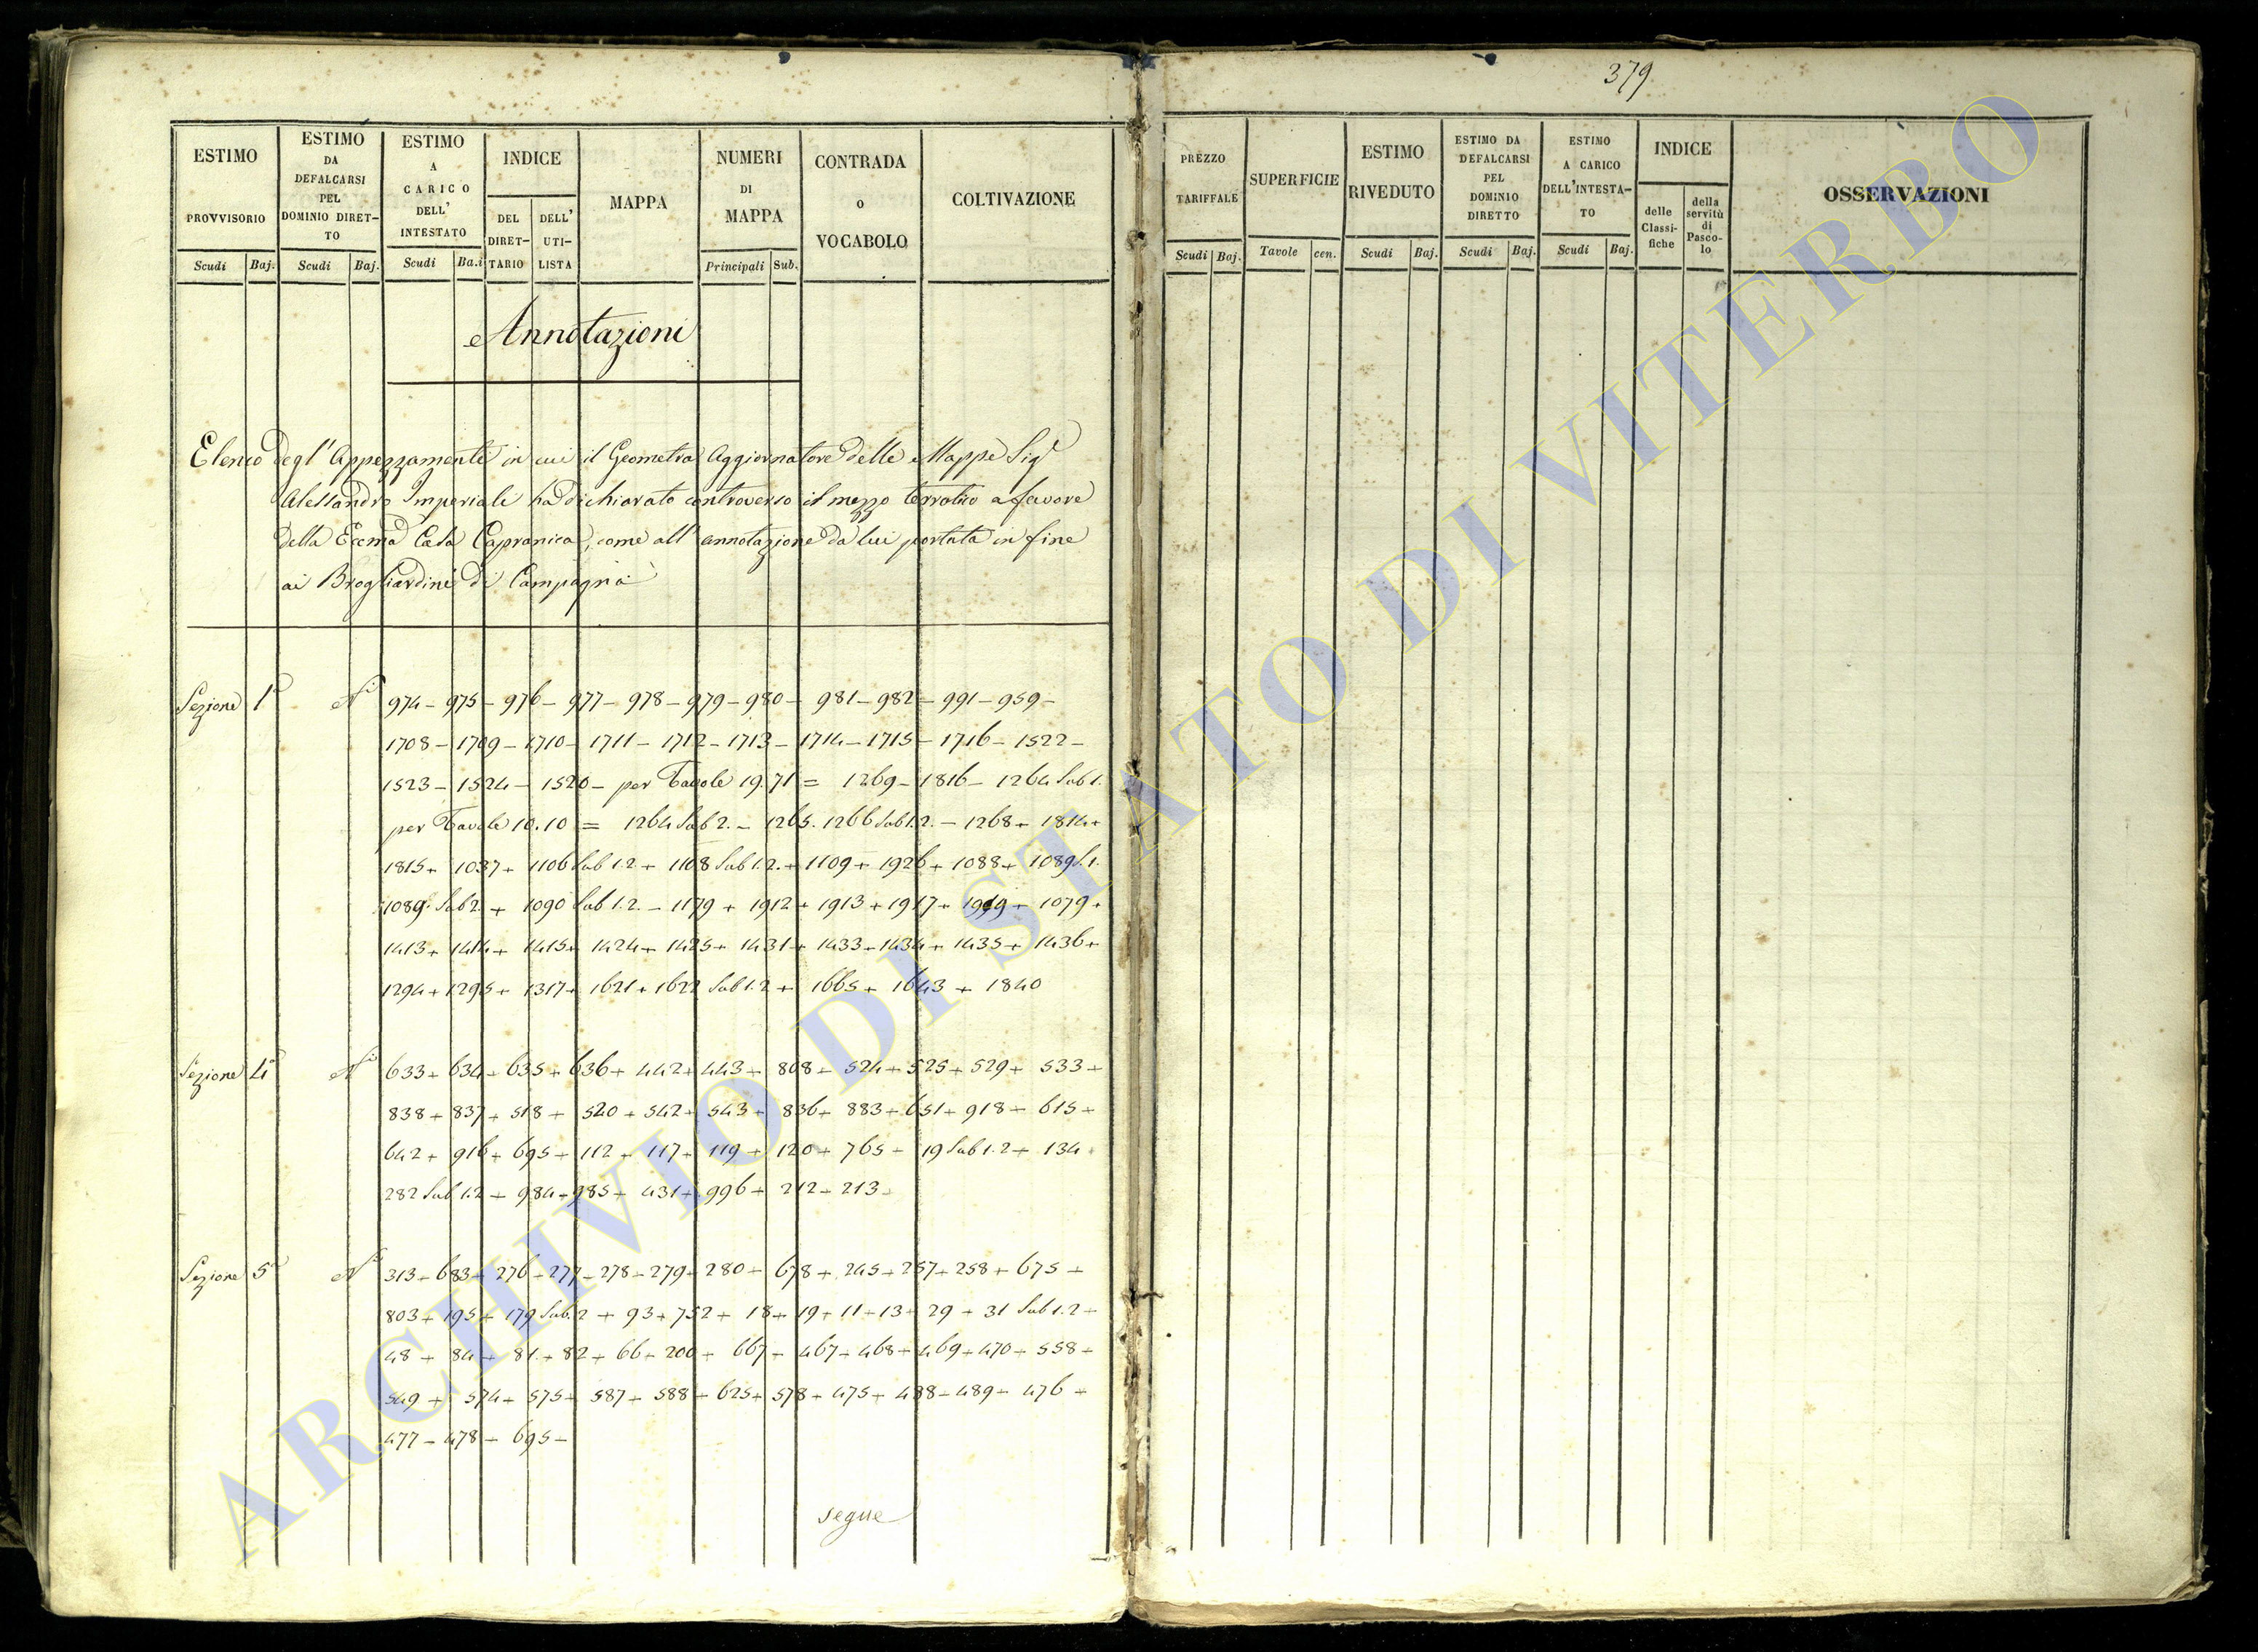 379
ESTIMO PROVVISORIO
Scudi Baj.
ESTIMO DA DEFALCARSI PEL DOMINIO DIRET- TO
Scudi Baj.
ESTIMO A CARICO DELL' INTESTATO
Scudi Ba.i
INDICE
DEL DIRET- TARIO
DELL' UTI- LISTA
MAPPA
NUMERI DI MAPPA
Principali Sub.
CONTRADA o VOCABOLO
COLTIVAZIONE
PREZZO TARIFFALE
Scudi Baj.
SUPERFICIE
Tavole cen.
ESTIMO RIVEDUTO
Scudi Baj.
ESTIMO DA DEFALCARSI PEL DOMINIO DIRETTO
Scudi Baj.
ESTIMO A CARICO DELL'INTESTA- TO
Scudi Baj.
INDICE
delle Classi- fiche
della servitù di Pasco- lo
OSSERVAZIONI
Annotazioni
Elenco degl' Appezzamenti in cui il Geometra Aggiornatore delle Mappe Sigr
Alessandro Imperiali ha dichiarato controverso il mezzo terratico a favore
della Eccma Casa Capranica, come all' annotazione da lui portata in fine
ai Brogliardini di Campagna
Sezione 1a Ni 974 - 975 - 976 - 977 - 978 - 979 - 980 - 981 - 982 - 991 - 959 -
1708 - 1709 - 1710 - 1711 - 1712 - 1713 - 1714 - 1715 - 1716 - 1522 -
1523 - 1524 - 1520 - per Tavole 19.71 = 1269 - 1816 - 1264 Sub 1.
per Tavole 10.10 = 1264 Sub 2. - 1265. 1266 Sub 1.2. - 1268 + 1814 +
1815 + 1037 + 1106 Sub 1.2 + 1108 Sub 1.2. + 1109 + 1926 + 1088 + 1089 S. 1.
1089. Sub 2. + 1090 Sub 1.2. - 1179 + 1912 + 1913 + 1917 + 1919 + 1079 +
1413 + 1414 + 1415 + 1424 + 1425 + 1431 + 1433 + 1434 + 1435 + 1436 +
1294 + 1295 + 1317 + 1621 + 1622 Sub 1.2 + 1665 + 1643 + 1840
Sezione 4a Ni 633 + 634 + 635 + 636 + 442 + 443 + 808 + 524 + 525 + 529 + 533 +
838 + 837 + 518 + 520 + 542 + 543 + 836 + 883 + 651 + 918 + 615 +
642 + 916 + 695 + 112 + 117 + 119 + 120 + 765 + 19 Sub 1.2 + 134
282 Sub 1.2 + 984 + 985 + 431 + 996 + 212 + 213
Sezione 5a Ni 313 + 683 + 276 + 277 - 278 - 279 + 280 + 678 + 245 + 257 + 258 + 675 +
803 + 195 + 179 Sub. 2 + 93 + 752 + 18 + 19 + 11 + 13 + 29 + 31 Sub 1.2 +
48 + 84 + 81 + 82 + 66 + 200 + 667 + 467 + 468 + 469 + 470 + 558 +
549 + 574 + 575 + 587 + 588 + 625 + 578 + 475 + 488 - 489 + 476 +
477 - 478 - 695 -
segue
ARCHIVIO DI STATO DI VITERBO